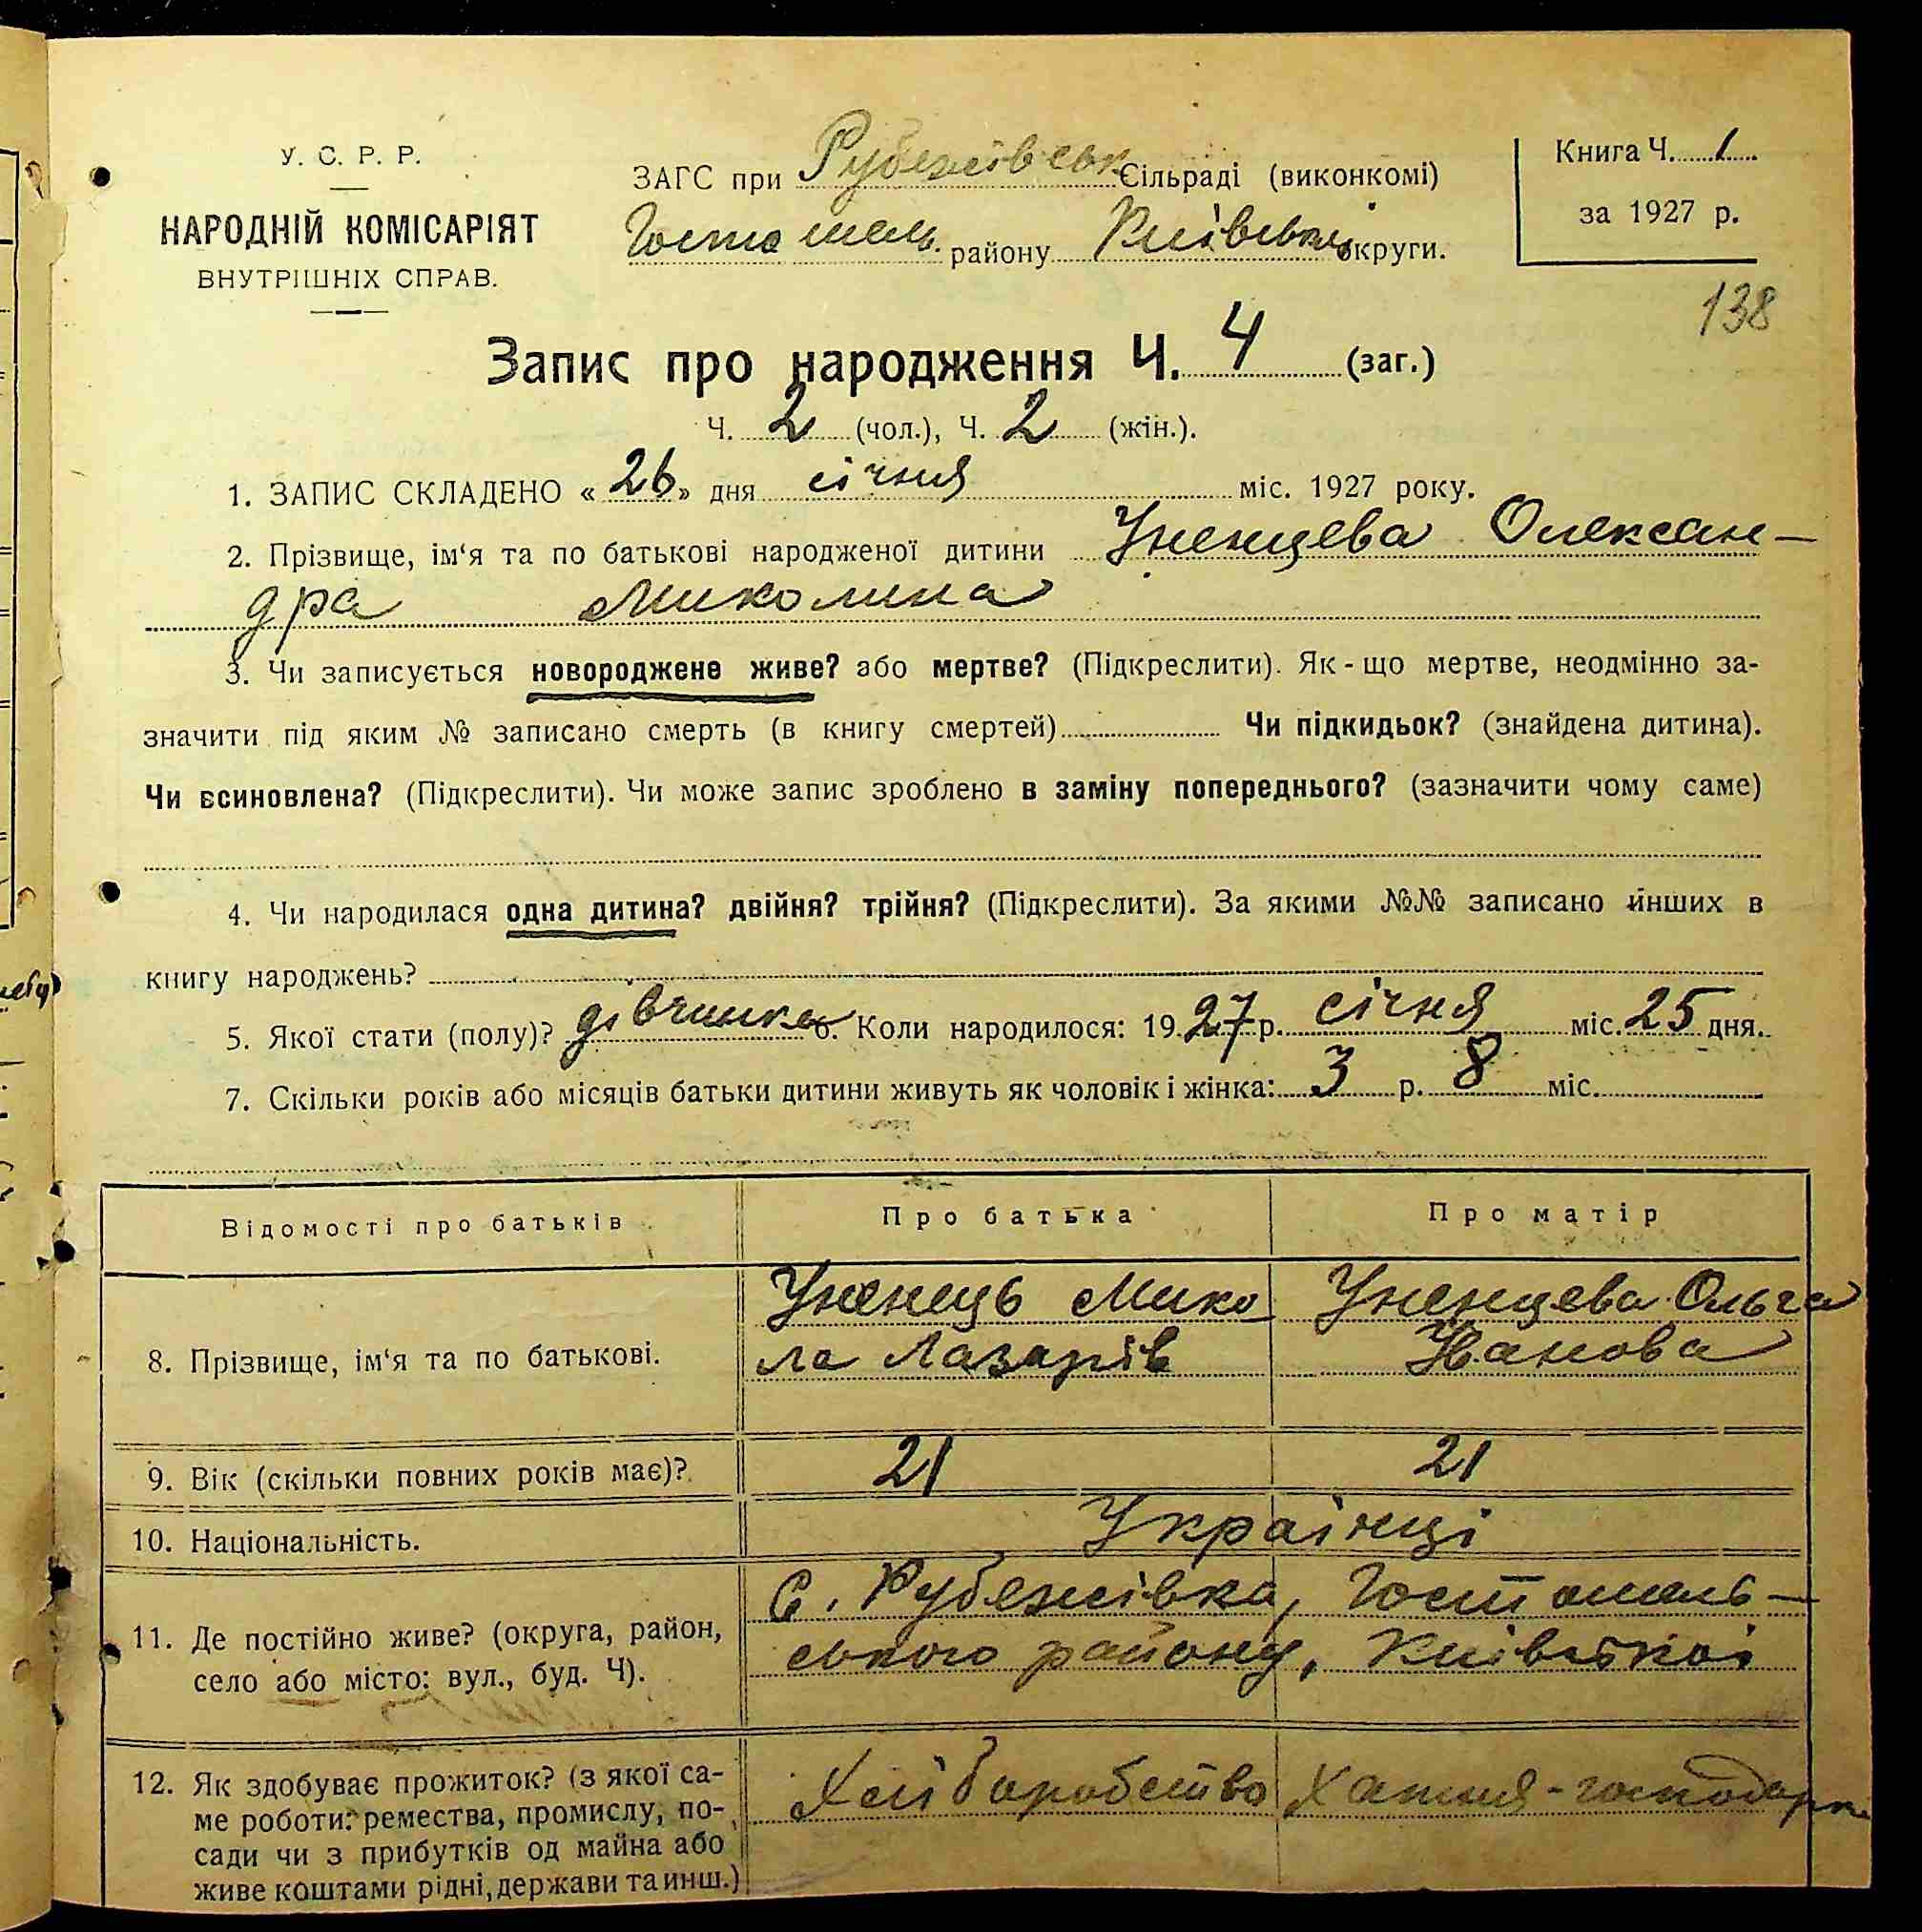 У. С. Р. Р.
НАРОДНІЙ КОМІСАРІЯТ
ВНУТРІШНІХ СПРАВ.
ЗАГС при Рубежівськ Сільраді (виконкомі)
Гостомель. району Київської округи.
Книга Ч. 1
за 1927 р.
138
Запис про народження Ч. 4 (заг.)
Ч. 2 (чол.), Ч. 2 (жін.).
1. ЗАПИС СКЛАДЕНО «26» дня січня міс. 1927 року.
2. Прізвище, ім‘я та по батькові народженої дитини Уненцева Олексан-
дра Миколина
3. Чи записується новороджене живе? або мертве? (Підкреслити). Як-що мертве, неодмінно за-
значити під яким № записано смерть (в книгу смертей) Чи підкидьок? (знайдена дитина).
Чи всиновлена? (Підкреслити). Чи може запис зроблено в заміну попереднього? (зазначити чому саме)
4. Чи народилася одна дитина? двійня? трійня? (Підкреслити). За якими №№ записано инших в
книгу народжень?
5. Якої стати (полу)? дівчинка 6. Коли народилося: 1927 р. січня міс. 25 дня.
7. Скільки років або місяців батьки дитини живуть як чоловік і жінка: 3 р. 8 міс.
Відомості про батьків Про батька Про матір
8. Прізвище, ім‘я та по батькові.
Уненець Мико
ла Лазарів
Уненцева Ольга
Иванова
9. Вік (скільки повних років має)? 21 21
10. Національність. Українці
11. Де постійно живе? (округа, район,
село або місто: вул., буд. Ч).
С. Рубежівка, Гостомель-
ського району, Київської
12. Як здобуває прожиток? (з якої са-
ме роботи: ремества, промислу, по-
сади чи з прибутків од майна або
живе коштами рідні, держави та инш.)
Хліборобство Хатня-господарка